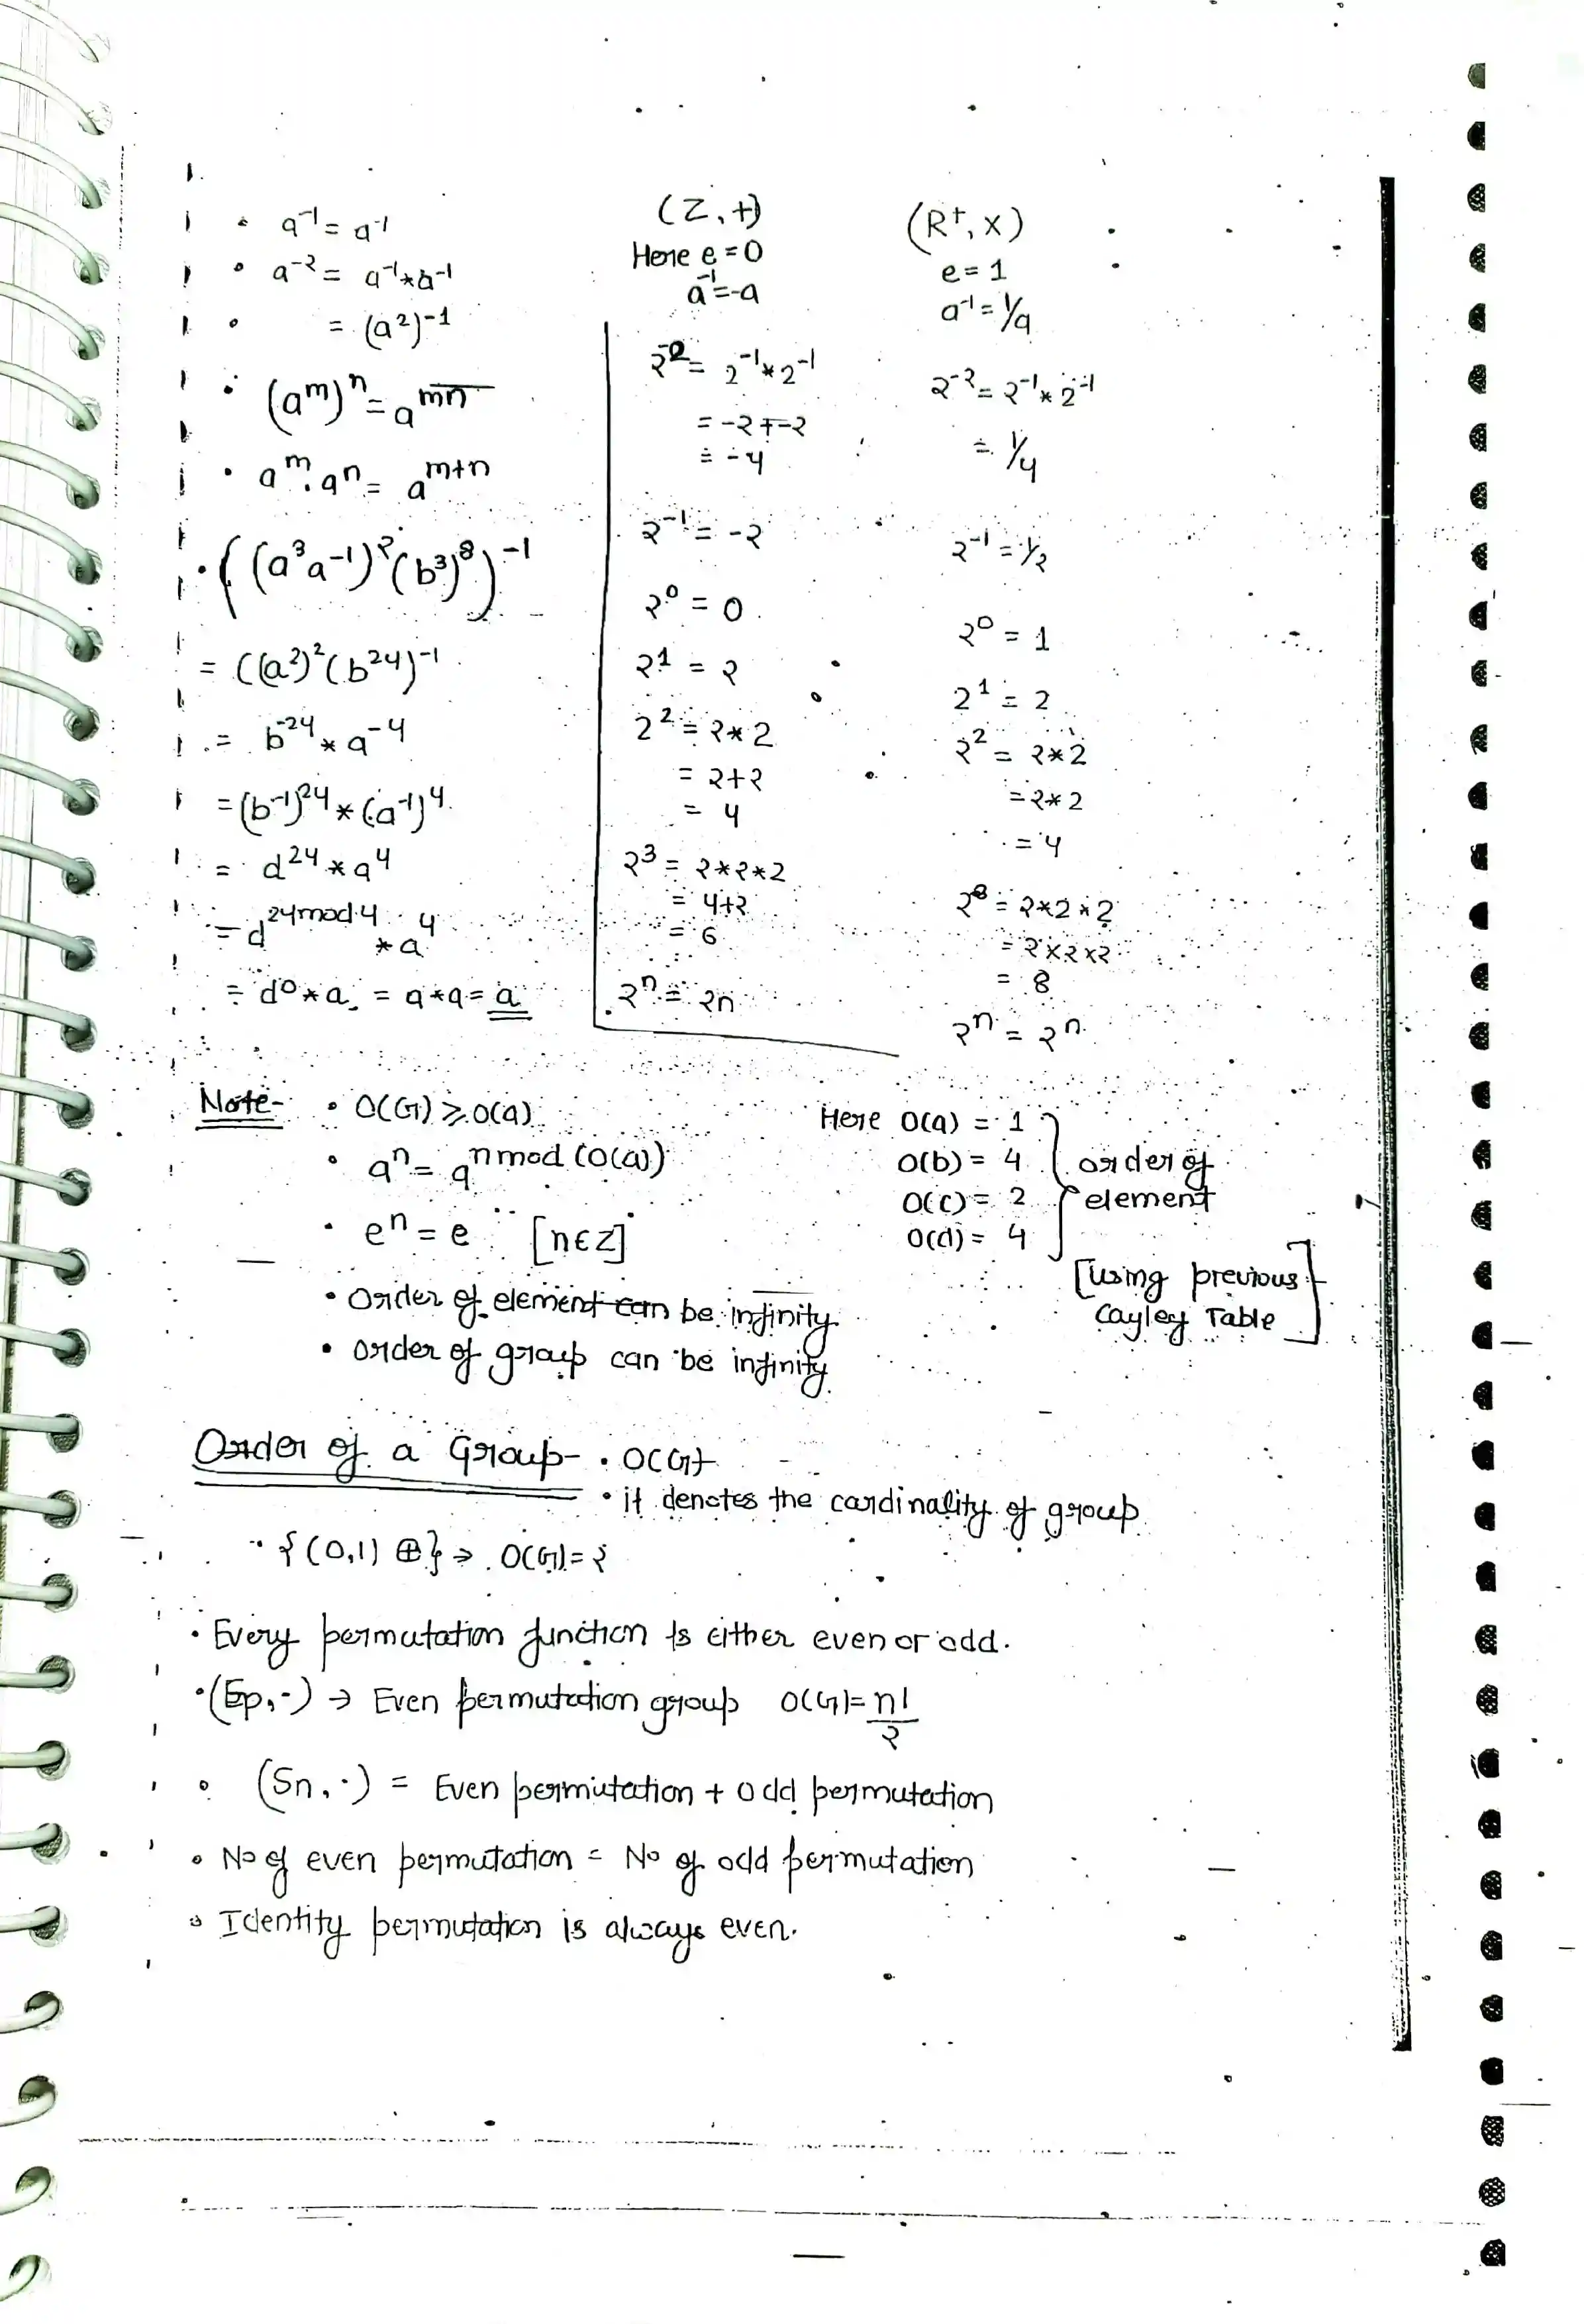 • a⁻¹ = a⁻¹
• a⁻² = a⁻¹ * a⁻¹
• = (a²)⁻¹
• (aᵐ)ⁿ = aᵐⁿ
• aᵐ . aⁿ = aᵐ⁺ⁿ
• ((a³a⁻¹)²(b³)⁸)⁻¹
= ((a²)²(b²⁴)⁻¹
= b⁻²⁴ * a⁻⁴
= (b⁻¹)²⁴ * (a⁻¹)⁴
= d²⁴ * a⁴
= d^(24 mod 4) * a⁴
= d⁰ * a = a * a = a
(Z, +)
Here e = 0
a⁻¹ = -a
2⁻² = 2⁻¹ * 2⁻¹
= -2 + -2
= -4
2⁻¹ = -2
2⁰ = 0
2¹ = 2
2² = 2 * 2
= 2+2
= 4
2³ = 2*2*2
= 4+2
= 6
2ⁿ = 2n
(R⁺, ×)
e = 1
a⁻¹ = 1/a
2⁻² = 2⁻¹ * 2⁻¹
= 1/4
2⁻¹ = 1/2
2⁰ = 1
2¹ = 2
2² = 2*2
= 2*2
= 4
2⁸ = 2*2*2
= 2×2×2
= 8
2ⁿ = 2ⁿ
Note- • O(G) ≥ O(a)
• aⁿ = a^(n mod (O(a)))
• eⁿ = e [n∈Z]
• Order of element can be infinity
• Order of group can be infinity
Here O(a) = 1
O(b) = 4
O(c) = 2
O(d) = 4
order of
element
[using previous
Cayley Table]
Order of a Group- • O(G)
• it denotes the cardinality of group
• {(0,1) ⊕} ⇒ O(G) = 2
• Every permutation function is either even or odd.
• (Ep, ·) → Even permutation group O(G) = n!/2
• (Sn, ·) = Even permutation + odd permutation
• No of even permutation = No of odd permutation
• Identity permutation is always even.